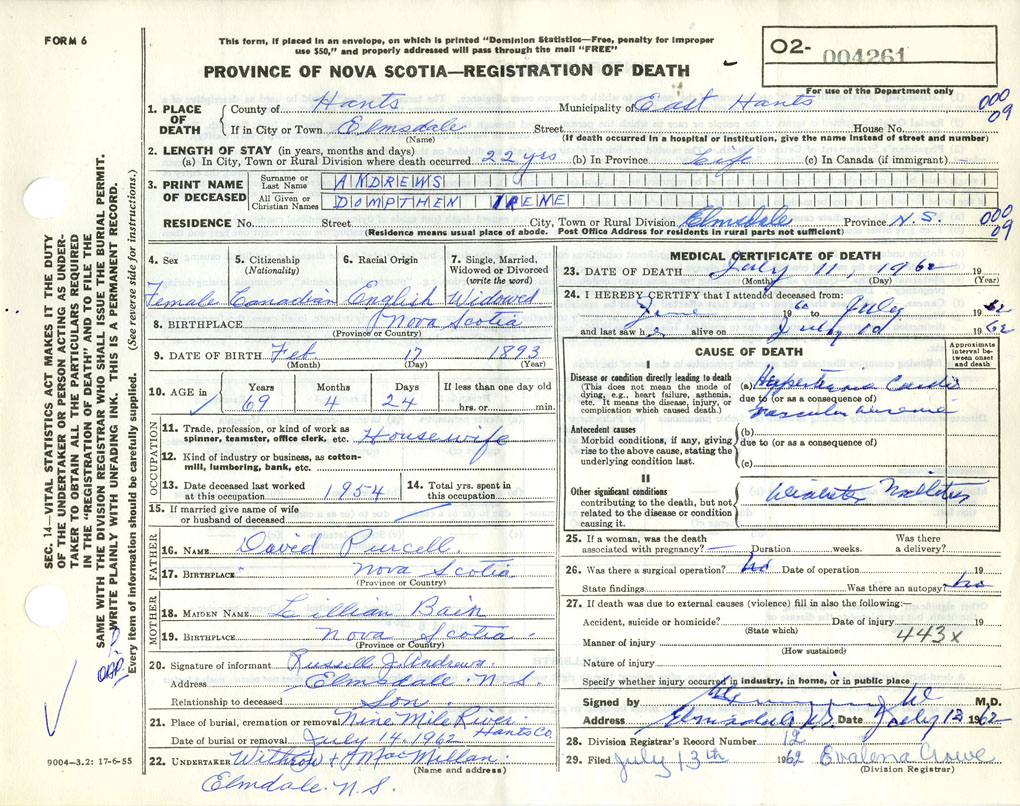 FORM 6
This form, if placed in an envelope, on which is printed "Dominion Statistics—Free, penalty for improper
use $50," and properly addressed will pass through the mail "FREE"
PROVINCE OF NOVA SCOTIA—REGISTRATION OF DEATH
O2- 004261
For use of the Department only
1. PLACE OF DEATH
County of Hants Municipality of East Hants
000
09
If in City or Town Elmsdale Street House No.
(Name) (If death occurred in a hospital or institution, give the name instead of street and number)
2. LENGTH OF STAY (in years, months and days)
(a) In City, Town or Rural Division where death occurred 22 yrs (b) In Province Life (c) In Canada (if immigrant) —
3. PRINT NAME OF DECEASED
Surname or Last Name ANDREWS
All Given or Christian Names DOMPTHEN IRENE
RESIDENCE No. Street City, Town or Rural Division Elmsdale Province N.S.
000
09
(Residence means usual place of abode. Post Office Address for residents in rural parts not sufficient)
4. Sex
Female
5. Citizenship (Nationality)
Canadian
6. Racial Origin
English
7. Single, Married, Widowed or Divorced (write the word)
Widowed
8. BIRTHPLACE Nova Scotia
(Province or Country)
9. DATE OF BIRTH Feb 17 1893
(Month) (Day) (Year)
10. AGE in
Years Months Days If less than one day old
69 4 24 hrs. or min.
OCCUPATION
11. Trade, profession, or kind of work as
spinner, teamster, office clerk, etc. Housewife
12. Kind of industry or business, as cotton-
mill, lumbering, bank, etc.
13. Date deceased last worked
at this occupation 1954
14. Total yrs. spent in
this occupation
15. If married give name of wife
or husband of deceased
FATHER
16. NAME David Purcell.
17. BIRTHPLACE Nova Scotia
(Province or Country)
MOTHER
18. MAIDEN NAME Lillian Bain
19. BIRTHPLACE Nova Scotia.
(Province or Country)
20. Signature of informant Russell J. Andrews.
Address Elmsdale N.S.
Relationship to deceased Son.
21. Place of burial, cremation or removal Nine Mile River
Hants Co.
Date of burial or removal July 14, 1962
22. UNDERTAKER Withrow & MacMillan.
(Name and address)
Elmdale. N.S.
MEDICAL CERTIFICATE OF DEATH
23. DATE OF DEATH July 11, 1962 19
(Month) (Day) (Year)
24. I HEREBY CERTIFY that I attended deceased from:
June 1960 to July 1962
and last saw h alive on July 10 1962
CAUSE OF DEATH
Approximate interval between onset and death
I
Disease or condition directly leading to death
(This does not mean the mode of
dying, e.g., heart failure, asthenia,
etc. It means the disease, injury, or
complication which caused death.)
(a)
due to (or as a consequence of)
Antecedent causes
Morbid conditions, if any, giving
rise to the above cause, stating the
underlying condition last.
(b)
due to (or as a consequence of)
(c)
II
Other significant conditions
contributing to the death, but not
related to the disease or condition
causing it.
25. If a woman, was the death
associated with pregnancy? — Duration weeks. Was there
a delivery?
26. Was there a surgical operation? No Date of operation 19
State findings Was there an autopsy? No
27. If death was due to external causes (violence) fill in also the following:—
Accident, suicide or homicide? Date of injury 19
(State which)
443x
Manner of injury
(How sustained)
Nature of injury
Specify whether injury occurred in industry, in home, or in public place
Signed by M.D.
Address Elmsdale N.S. Date July 13 1962
28. Division Registrar's Record Number 12
29. Filed July 13th 1962 Evalena Crowe
(Division Registrar)
SEC. 14—VITAL STATISTICS ACT MAKES IT THE DUTY
OF THE UNDERTAKER OR PERSON ACTING AS UNDER-
TAKER TO OBTAIN ALL THE PARTICULARS REQUIRED
IN THE "REGISTRATION OF DEATH" AND TO FILE THE
SAME WITH THE DIVISION REGISTRAR WHO SHALL ISSUE THE BURIAL PERMIT.
WRITE PLAINLY WITH UNFADING INK. THIS IS A PERMANENT RECORD.
Every item of information should be carefully supplied. (See reverse side for instructions.)
9004—3.2: 17-6-55